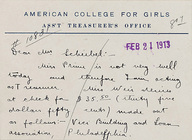 AMERICAN COLLEGE FOR GIRLS
ASST TREASURER'S OFFICE
FEB 21 1913
Dear Mr. Scheelat:
Miss Prime is not very well
today and therefore I am acting
as Treasurer. Miss Weis desires
a check for $35.50 (thirty five
dollars fifty cents) made out
as follows: Vice Building and Loan
Association, Philadelphia